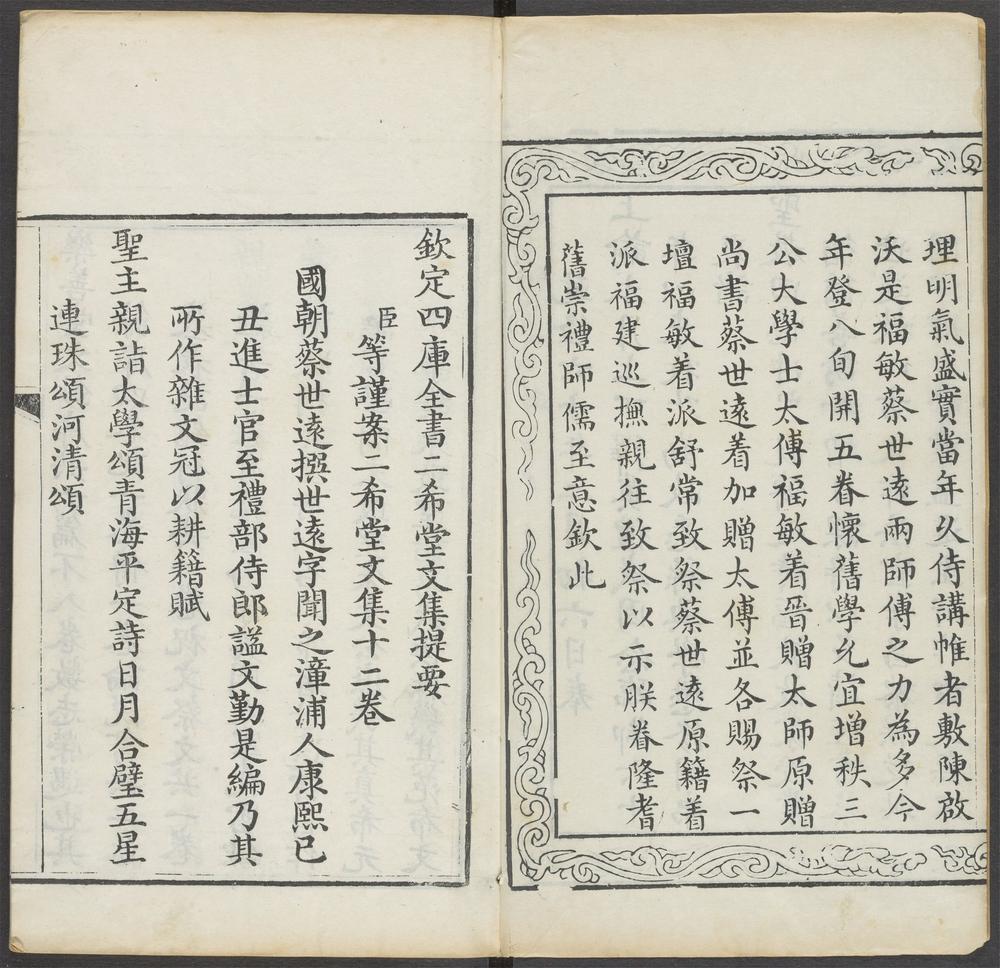 埋明氣盛實當年久侍講帷者敷陳啟
沃是福敏蔡世遠兩師傅之力為多今
年登八旬開五眷懷舊學允宜增秩三
公大學士太傅福敏着晉贈太師原贈
尚書蔡世遠着加贈太傅並各賜祭一
壇福敏着派舒常致祭蔡世遠原籍着
派福建巡撫親往致祭以示朕眷隆耆
舊崇禮師儒至意欽此
欽定四庫全書二希堂文集提要
臣等謹案二希堂文集十二卷
國朝蔡世遠撰世遠字聞之漳浦人康熙己
丑進士官至禮部侍郎諡文勤是編乃其
所作雜文冠以耕籍賦
聖主親詣太學頌青海平定詩日月合璧五星
連珠頌河清頌